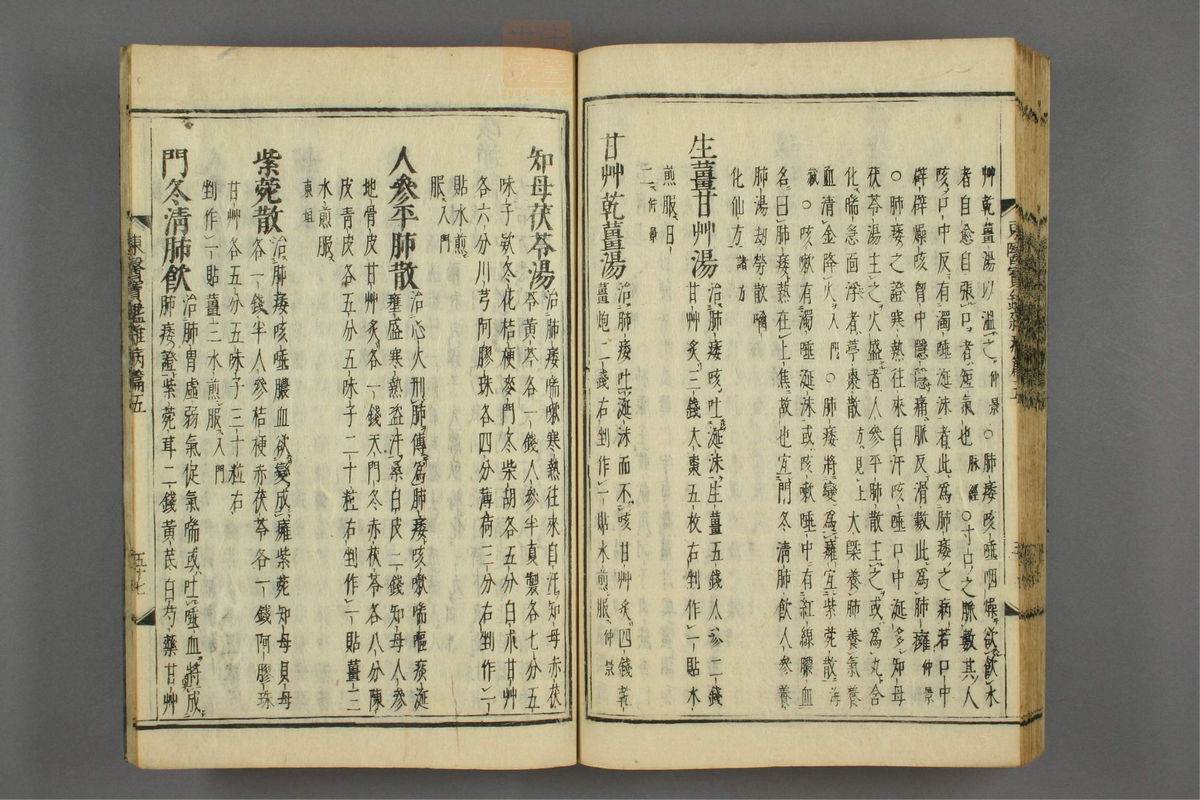 艸乾薑湯以溫之仲景○肺痿咳唾咽燥欲飮水
者自愈自張口者短氣也脉經○寸口之脈數其人
咳口中反有濁唾涎沫者此爲肺痿之病若口中
辟辟燥咳胷中隱隱痛脈反滑數此爲肺癰仲景
○肺痿之證寒熱往來自汗咳唾口中涎多知母
茯苓湯主之火盛者人參平肺散主之或爲丸含
化喘急面浮者葶棗散方見上大槩養肺養氣養
血淸金降火入門○肺痿將變爲癰宜紫菀散海
藏○咳嗽有濁唾涎沫或咳嗽唾中有紅線膿血
名曰肺痿熱在上焦故也宜門冬淸肺飮人參養
肺湯劫勞散噙
化仙方諸方
生薑甘艸湯治肺痿咳吐涎沫生薑五錢人參二錢
甘艸炙三錢大棗五枚右剉作一貼水
煎服日
二仲景
甘艸乾薑湯治肺痿吐涎沫而不咳甘艸炙四錢乾
薑炮二錢右剉作一貼水煎服仲景
知母茯苓湯治肺痿喘嗽寒熱往來自汗知母赤茯
苓黃芩各一錢人參半夏製各七分五
味子款冬花桔梗麥門冬柴胡各五分白朮甘艸
各六分川芎阿膠珠各四分薄荷三分右剉作一
貼水煎
服入門
人參平肺散治心火刑肺傳爲肺痿咳嗽喘嘔痰涎
壅盛寒熱盜汗桑白皮二錢知母人參
地骨皮甘艸炙各一錢天門冬赤茯苓各八分陳
皮靑皮各五分五味子二十粒右剉作一貼薑三
水煎服
東垣
紫菀散治肺痿咳唾膿血欲變成癰紫菀知母貝母
各一錢半人參桔梗赤茯苓各一錢阿膠珠
甘艸各五分五味子三十粒右
剉作一貼薑三水煎服入門
門冬淸肺飮治肺胃虛弱氣促氣喘或吐唾血將成
肺痿證紫菀茸二錢黃芪白芍藥甘艸
東醫寶鑑雜病篇五
五十七